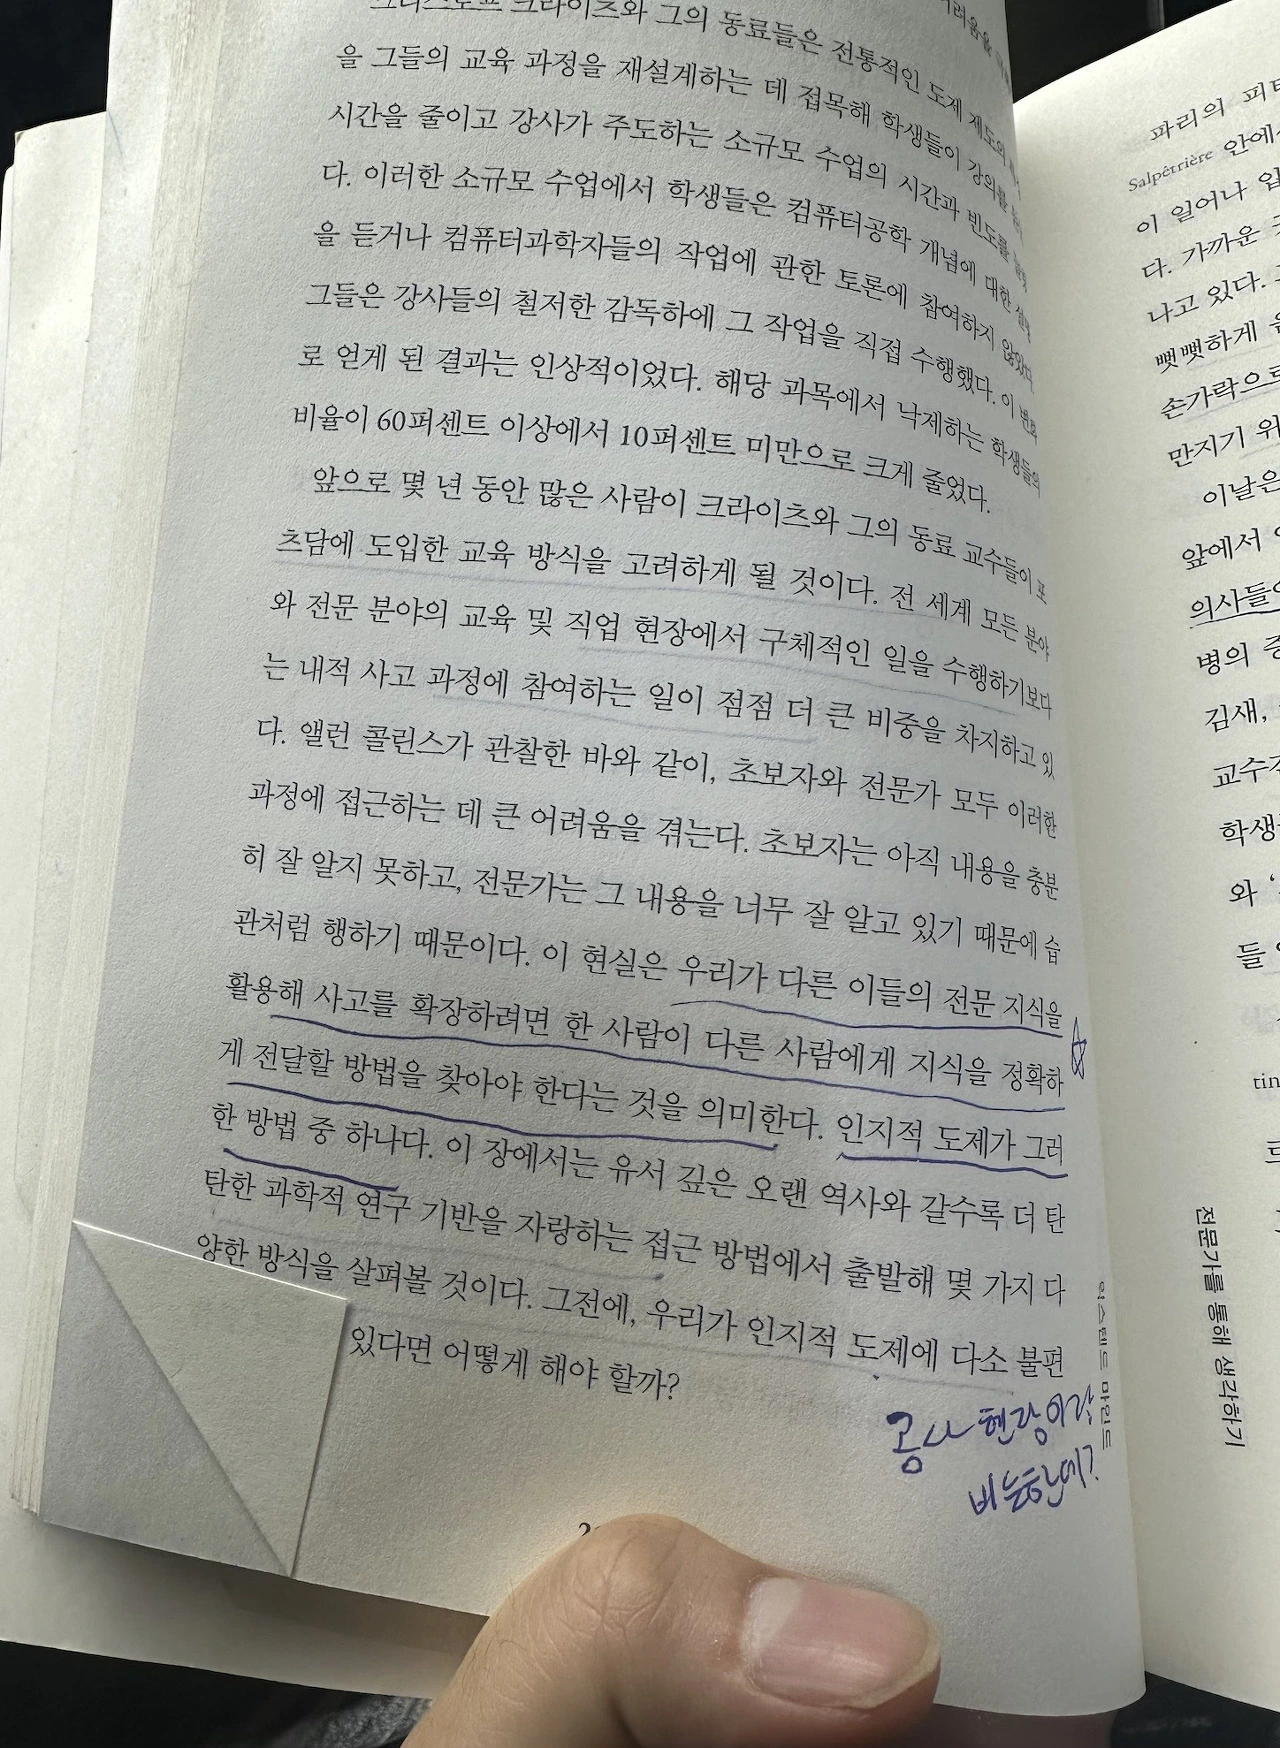 크라이츠와 그의 동료들은 전통적인 도제 제도의
을 그들의 교육 과정을 재설계하는 데 접목해 학생들이 강의를 듣는
시간을 줄이고 강사가 주도하는 소규모 수업의 시간과 빈도를
다. 이러한 소규모 수업에서 학생들은 컴퓨터공학 개념에 대한 설명
을 듣거나 컴퓨터과학자들의 작업에 관한 토론에 참여하지 않았다.
그들은 강사들의 철저한 감독하에 그 작업을 직접 수행했다. 이 변화
로 얻게 된 결과는 인상적이었다. 해당 과목에서 낙제하는 학생들의
비율이 60퍼센트 이상에서 10퍼센트 미만으로 크게 줄었다.
앞으로 몇 년 동안 많은 사람이 크라이츠와 그의 동료 교수들이 포
츠담에 도입한 교육 방식을 고려하게 될 것이다. 전 세계 모든 분야
와 전문 분야의 교육 및 직업 현장에서 구체적인 일을 수행하기보다
는 내적 사고 과정에 참여하는 일이 점점 더 큰 비중을 차지하고 있
다. 앨런 콜린스가 관찰한 바와 같이, 초보자와 전문가 모두 이러한
과정에 접근하는 데 큰 어려움을 겪는다. 초보자는 아직 내용을 충분
히 잘 알지 못하고, 전문가는 그 내용을 너무 잘 알고 있기 때문에 습
관처럼 행하기 때문이다. 이 현실은 우리가 다른 이들의 전문 지식을
활용해 사고를 확장하려면 한 사람이 다른 사람에게 지식을 정확하
게 전달할 방법을 찾아야 한다는 것을 의미한다. 인지적 도제가 그러
한 방법 중 하나다. 이 장에서는 유서 깊은 오랜 역사와 갈수록 더 탄
탄한 과학적 연구 기반을 자랑하는 접근 방법에서 출발해 몇 가지 다
양한 방식을 살펴볼 것이다. 그전에, 우리가 인지적 도제에 다소 불편
있다면 어떻게 해야 할까?
공사 현장이랑
비슷한데?
익스텐드 마인드
파리의 피
Salpêtrière 안에
이 일어나
다. 가까운
나고 있다.
뻣뻣하게
손가락으로
만지기 위
이날은
앞에서
의사들
병의
김새,
교수
학생
와
들
tin
전문가를 통해 생각하기